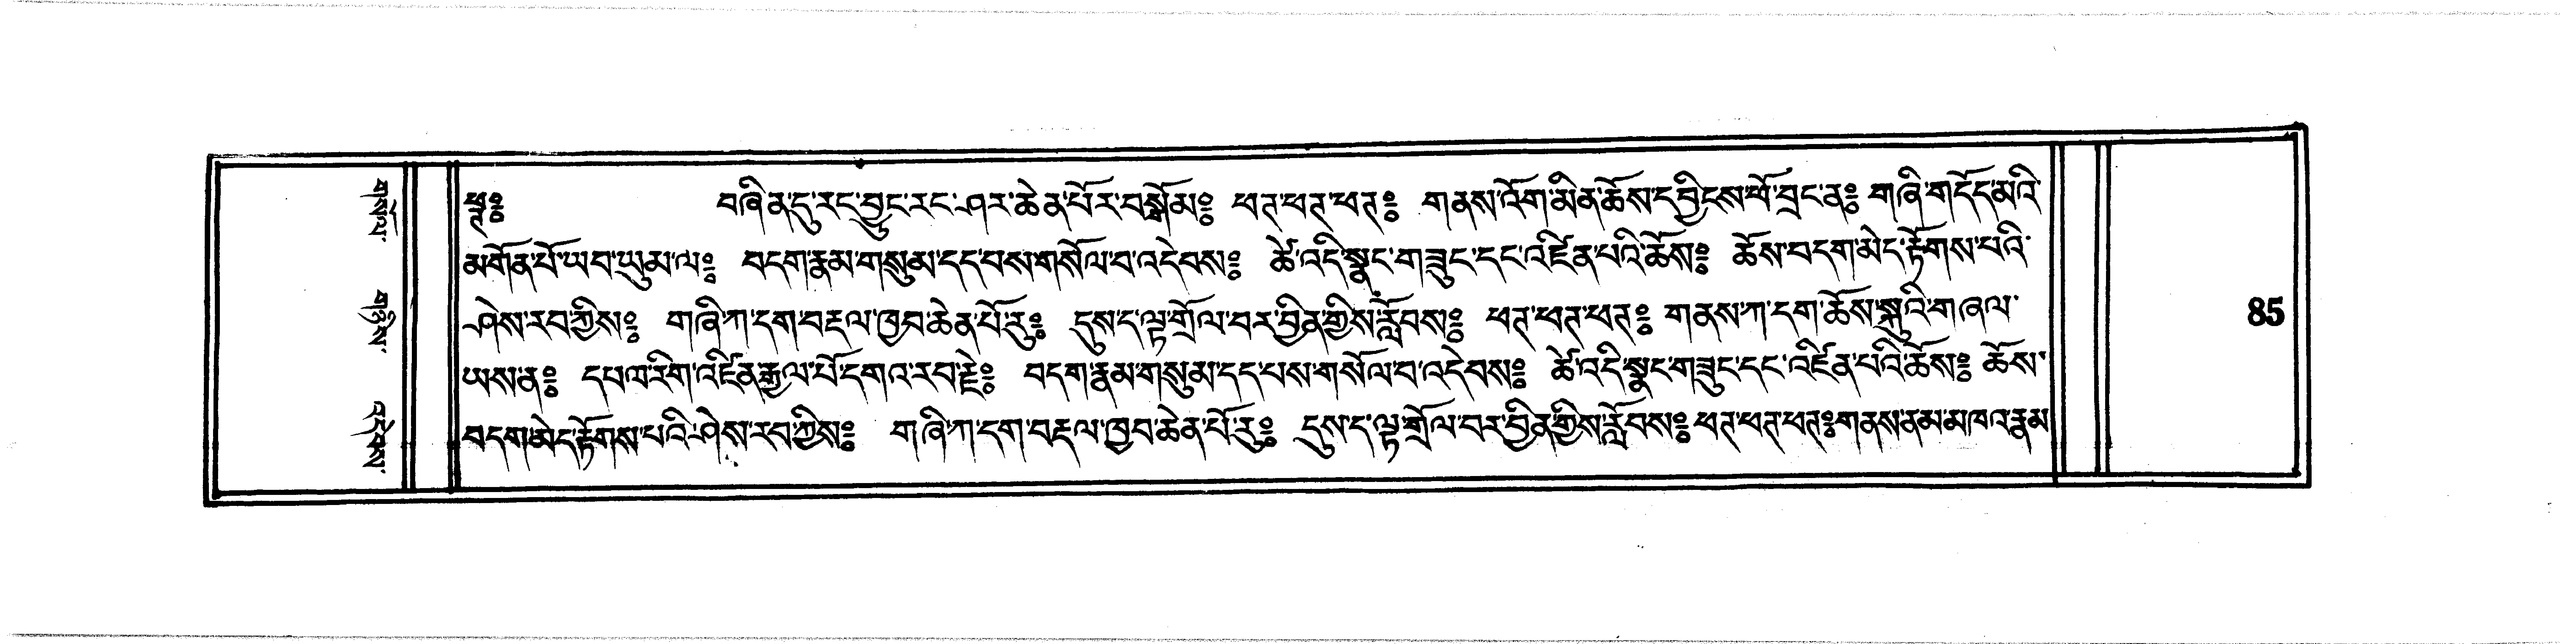 གསོལ་ གཉིས་ འདེབས་
ཕཊ༔ བཞིན་དུ་རང་བྱུང་རང་ཤར་ཆེན་པོར་བསྒོམ༔ ཕཊ་ཕཊ་ཕཊ༔ གནས་འོག་མིན་ཆོས་དབྱིངས་ཕོ་བྲང་ན༔ གཞི་གདོད་མའི་
མགོན་པོ་ཡབ་ཡུམ་ལ༔ བདག་རྣམ་གསུམ་དད་པས་གསོལ་བ་འདེབས༔ ཚེ་འདི་སྣང་གཟུང་དང་འཛིན་པའི་ཆོས༔ ཆོས་བདག་མེད་རྟོགས་པའི་
ཤེས་རབ་ཀྱིས༔ གཞི་ཀ་དག་བརྡལ་ཁྱབ་ཆེན་པོ་རུ༔ དུས་ད་ལྟ་གྲོལ་བར་བྱིན་གྱིས་རློབས༔ ཕཊ་ཕཊ་ཕཊ༔ གནས་ཀ་དག་ཆོས་སྐུའི་གཞལ་
ཡས་ན༔ དཔལ་རིག་འཛིན་རྒྱལ་པོ་དགའ་རབ་རྗེ༔ བདག་རྣམ་གསུམ་དད་པས་གསོལ་བ་འདེབས༔ ཚེ་འདི་སྣང་གཟུང་དང་འཛིན་པའི་ཆོས༔ ཆོས་
བདག་མེད་རྟོགས་པའི་ཤེས་རབ་ཀྱིས༔ གཞི་ཀ་དག་བརྡལ་ཁྱབ་ཆེན་པོ་རུ༔ དུས་ད་ལྟ་གྲོལ་བར་བྱིན་གྱིས་རློབས༔ ཕཊ་ཕཊ་ཕཊ༔ གནས་ནམ་མཁའ་རྣམ
85